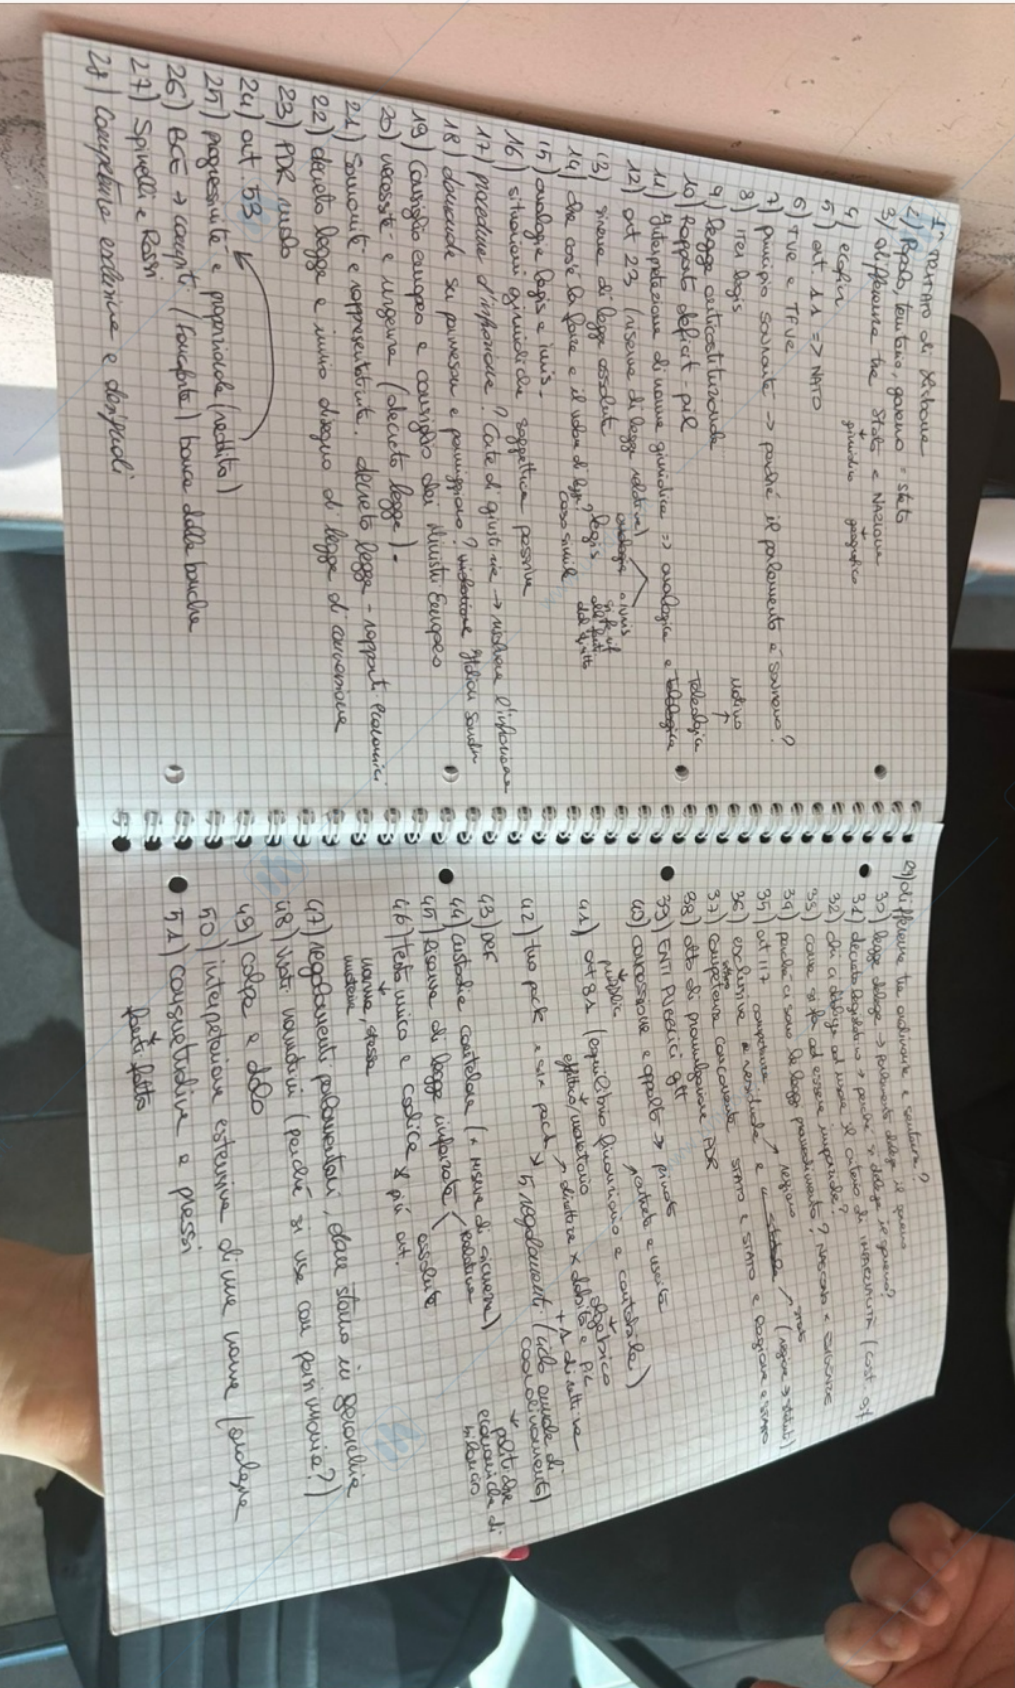 1) TRATTATO di Lisbona
2) Popolo, territorio, governo = stato
3) differenza tra Stato e Nazione
giuridico geografico
4) ecofin
5) art. 11 => NATO
6) TUE e TFUE
7) principio sovranità -> perché il parlamento è sovrano?
8) iter legis
9) legge anticostituzionale
10) Rapporto deficit - pil
11) Interpretazione di norme giuridica => analogica e teleologica
Teleologica
motivo
12) art 23 (riserva di legge relativa)
analogia legis iuris
caso simile
del diritto
13) riserva di legge assoluta
14) che cos'è la forza e il valore di legge?
15) analogia legis e iuris
16) situazioni giuridiche soggettive passive
17) procedura d'infrazione? Corte di giustizia -> risolvere l'infrazione
18) domande su
19) Consiglio europeo e consiglio dei Ministri Europeo
20) necessità e urgenza (decreto legge)
21) Sovranità e rappresentatività. decreto legge - rapporti economici
22) decreto legge e invio disegno di legge di conversione
23) PDR ruolo
24) art. 53
25) progressività e proporzionale (reddito)
26) BCE -> compiti (Francoforte) banca delle banche
27) Spinelli e Rossi
28) Competenza esclusiva e
29) differenza tra ordinanza e sentenza?
30) legge delega -> parlamento delega il governo
31) decreto legislativo -> perché si delega il governo?
32) chi ci obbliga ad usare il criterio di (cost 97
33) come si fa ad essere imparziale?
34) perché ci sono le leggi provvedimento?
35) art 117 competenza
36) esclusiva e residuale
37) competenza concorrente STATO e Regione
38) atto di promulgazione PDR
39) ENTI PUBBLICI
40) concessione e appalto -> privato
pubblica
41) art 81 (equilibrio finanziario e contabile)
entrate e uscite
effettivo/monetario algebrico
42) two pack e six pack -> 5 regolamenti (ciclo annuale di coordinamento)
+ 1 direttiva
politiche economiche di bilancio
43) DEF
44) custodia cautelare (x misura di sicurezza)
45) Riserva di legge rinforzata assoluta
relativa
46) testo unico e codice x più art.
norma, stessa materia
47) regolamenti parlamentari, dove stanno in gerarchia
48) Voti nominativi (perché si usa con parsimonia?)
49) colpa e dolo
50) interpretazione estensiva di una norma (analogia
51) consuetudine e prassi
fonti fatto